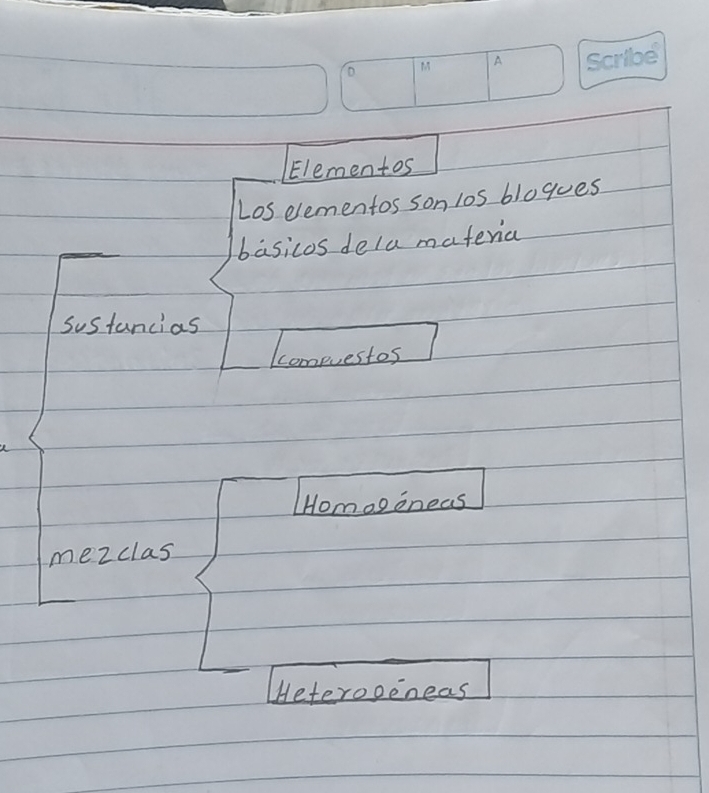 D M A Scribe
Elementos
Los elementos son los bloques
básicos de la materia
sustancias
compuestos
Homogéneas
mezclas
Heterogéneas